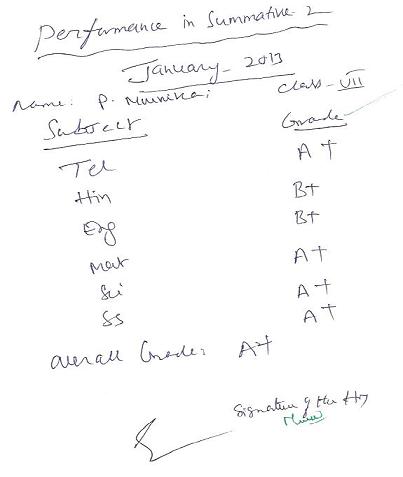 Performance in Summative 2
January - 2013
Name: P. Mounikai Class - VII
Subject Grade
Tel A+
Hin B+
Eng B+
Mat A+
Sci A+
SS A+
Overall Grade: A+
Signature of the HM